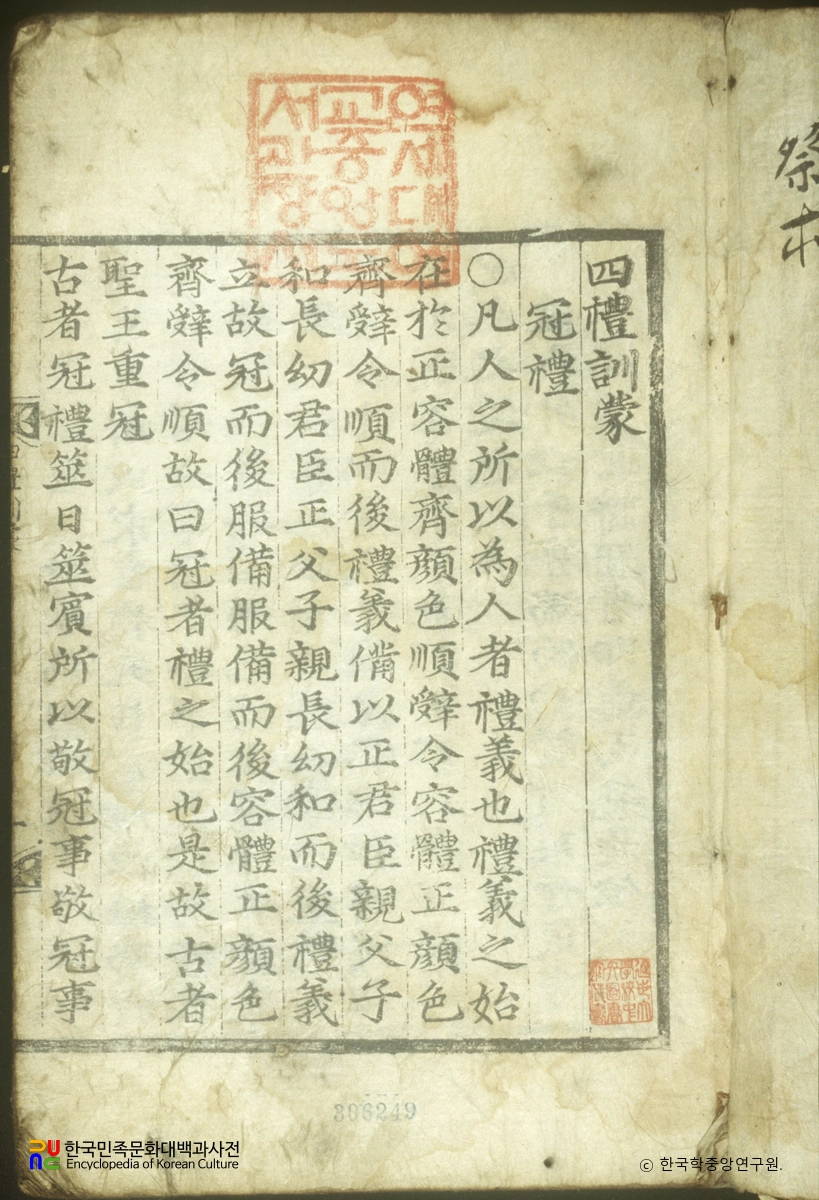 四禮訓蒙
冠禮
○凡人之所以為人者禮義也禮義之始
在於正容體齊顔色順辭令容體正顔色
齊辭令順而後禮義備以正君臣親父子
和長幼君臣正父子親長幼和而後禮義
立故冠而後服備服備而後容體正顔色
齊辭令順故曰冠者禮之始也是故古者
聖王重冠
古者冠禮筮日筮賓所以敬冠事敬冠事
연세대학
교중앙도
서관장서
306249
한국민족문화대백과사전
Encyclopedia of Korean Culture
© 한국학중앙연구원.